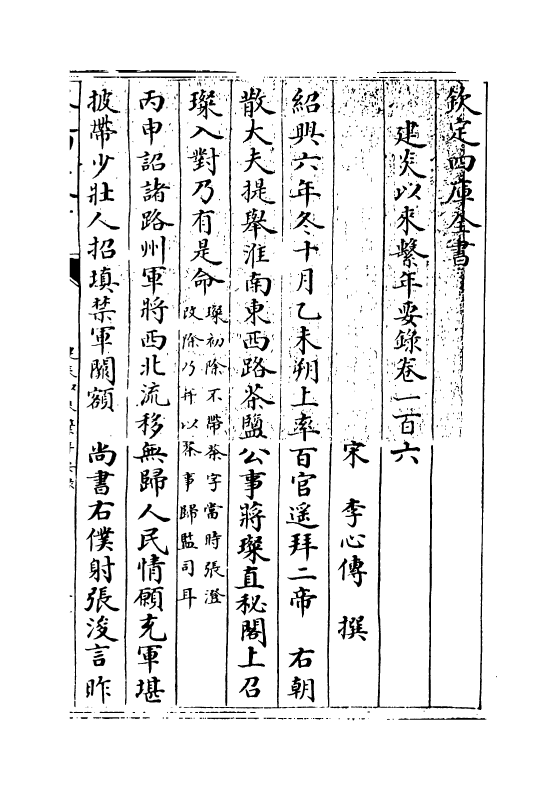 欽定四庫全書
建炎以來繫年要錄卷一百六
宋 李心傳 撰
紹興六年冬十月乙未朔上率百官遥拜二帝 右朝
散大夫提舉淮南東西路茶鹽公事蔣璨直秘閣上召
璨入對乃有是命璨初除不帶茶字當時張澄
改除乃并以茶事歸監司耳
丙申詔諸路州軍將西北流移無歸人民情願充軍堪
披帶少壯人招填禁軍闕額 尚書右僕射張浚言昨